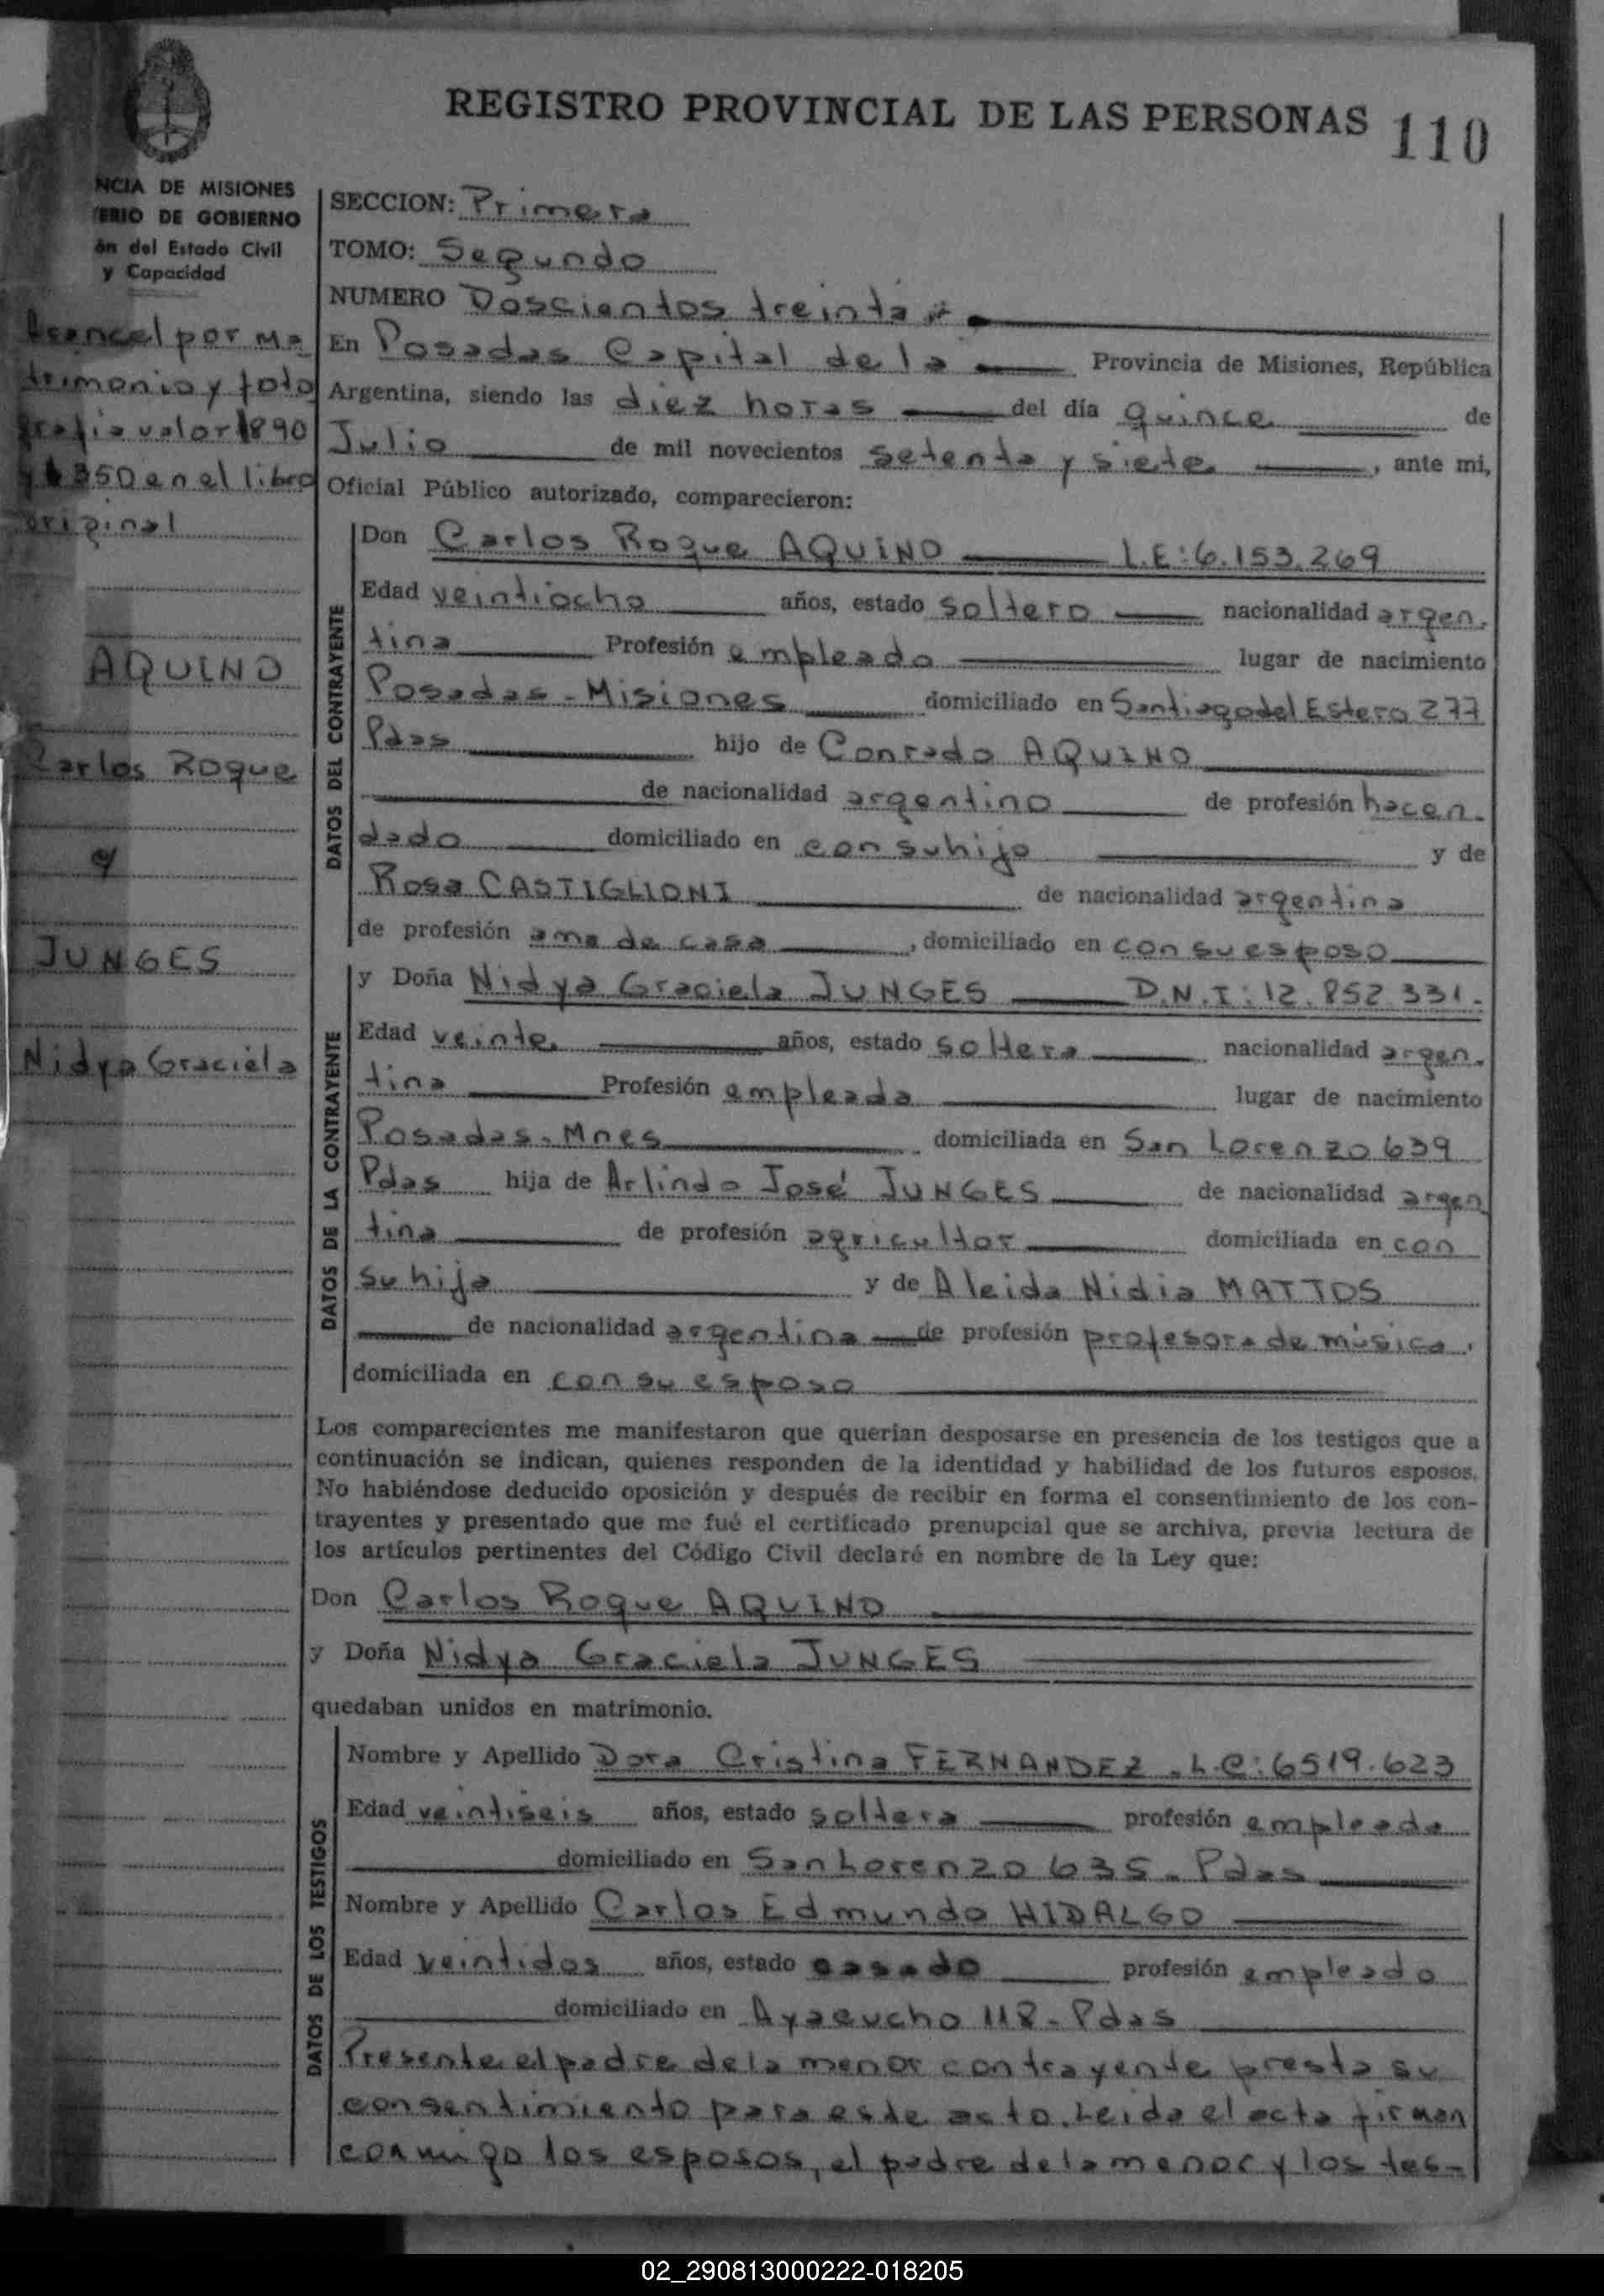 REGISTRO PROVINCIAL DE LAS PERSONAS 110
NCIA DE MISIONES
ERIO DE GOBIERNO
ón del Estado Civil
y Capacidad
Arancel por ma
trimonio y foto
grafia valor $890
y $350 en el libro
original
AQUINO
Carlos Roque
y
JUNGES
Nidya Graciela
SECCION: Primera
TOMO: Segundo
NUMERO Doscientos treinta
En Posadas Capital de la Provincia de Misiones, República
Argentina, siendo las diez horas del día quince de
Julio de mil novecientos setenta y siete, ante mi,
Oficial Público autorizado, comparecieron:
DATOS DEL CONTRAYENTE
Don Carlos Roque AQUINO L.E:6.153.269
Edad veintiocho años, estado soltero nacionalidad argen.
tina Profesión empleado lugar de nacimiento
Posadas-Misiones domiciliado en Santiago del Estero 277
Pdas hijo de Conrado AQUINO
de nacionalidad argentino de profesión hacen-
dado domiciliado en con su hijo y de
Rosa CASTIGLIONI de nacionalidad argentina
de profesión ama de casa, domiciliado en con su esposo
DATOS DE LA CONTRAYENTE
y Doña Nidya Graciela JUNGES D.N.I:12.852.331.
Edad veinte años, estado soltera nacionalidad argen.
tina Profesión empleada lugar de nacimiento
Posadas-Mnes domiciliada en San Lorenzo 639
Pdas hija de Arlindo José JUNGES de nacionalidad argen
tina de profesión agricultor domiciliada en con
su hija y de Aleida Nidia MATTOS
de nacionalidad argentina de profesión profesora de música,
domiciliada en con su esposo
Los comparecientes me manifestaron que querían desposarse en presencia de los testigos que a
continuación se indican, quienes responden de la identidad y habilidad de los futuros esposos.
No habiéndose deducido oposición y después de recibir en forma el consentimiento de los con-
trayentes y presentado que me fué el certificado prenupcial que se archiva, previa lectura de
los artículos pertinentes del Código Civil declaré en nombre de la Ley que:
Don Carlos Roque AQUINO
y Doña Nidya Graciela JUNGES
quedaban unidos en matrimonio.
DATOS DE LOS TESTIGOS
Nombre y Apellido Dora Cristina FERNANDEZ.L.C:6519.623
Edad veintiseis años, estado soltera profesión empleada
domiciliado en San Lorenzo 635-Pdas
Nombre y Apellido Carlos Edmundo HIDALGO
Edad veintidos años, estado casado profesión empleado
domiciliado en Ayacucho 118-Pdas
Presente el padre de la menor contrayente presta su
consentimiento para este acto. Leida el acta firman
conmigo los esposos, el padre de la menor y los tes-
02_290813000222-018205